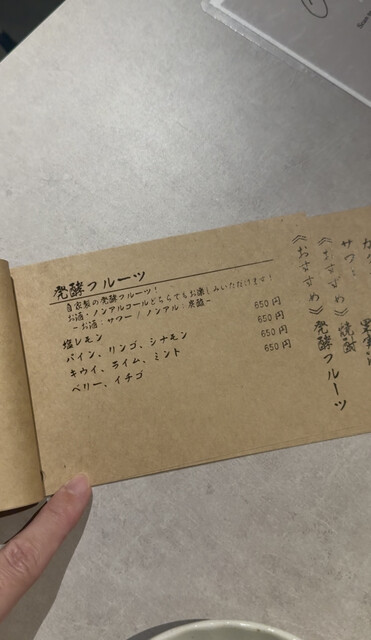 発酵フルーツ
自家製の発酵フルーツ!
お酒・ノンアルコールどちらでもお楽しみいただけます!
~お酒:サワー / ノンアル:炭酸~
塩レモン 650円
パイン、リンゴ、シナモン 650円
キウイ、ライム、ミント 650円
ベリー、イチゴ 650円
サワー
《おすすめ》焼酎
《おすすめ》発酵フルーツ
果実酒